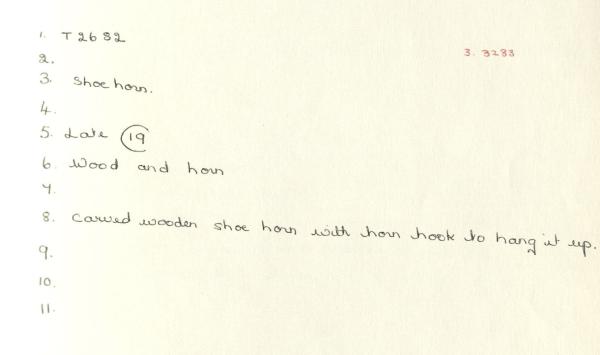 1. T2682
3. 3283
2.
3. Shoe horn.
4.
5. Late 19
6. Wood and horn
7.
8. Carved wooden shoe horn with horn hook to hang it up.
9.
10.
11.